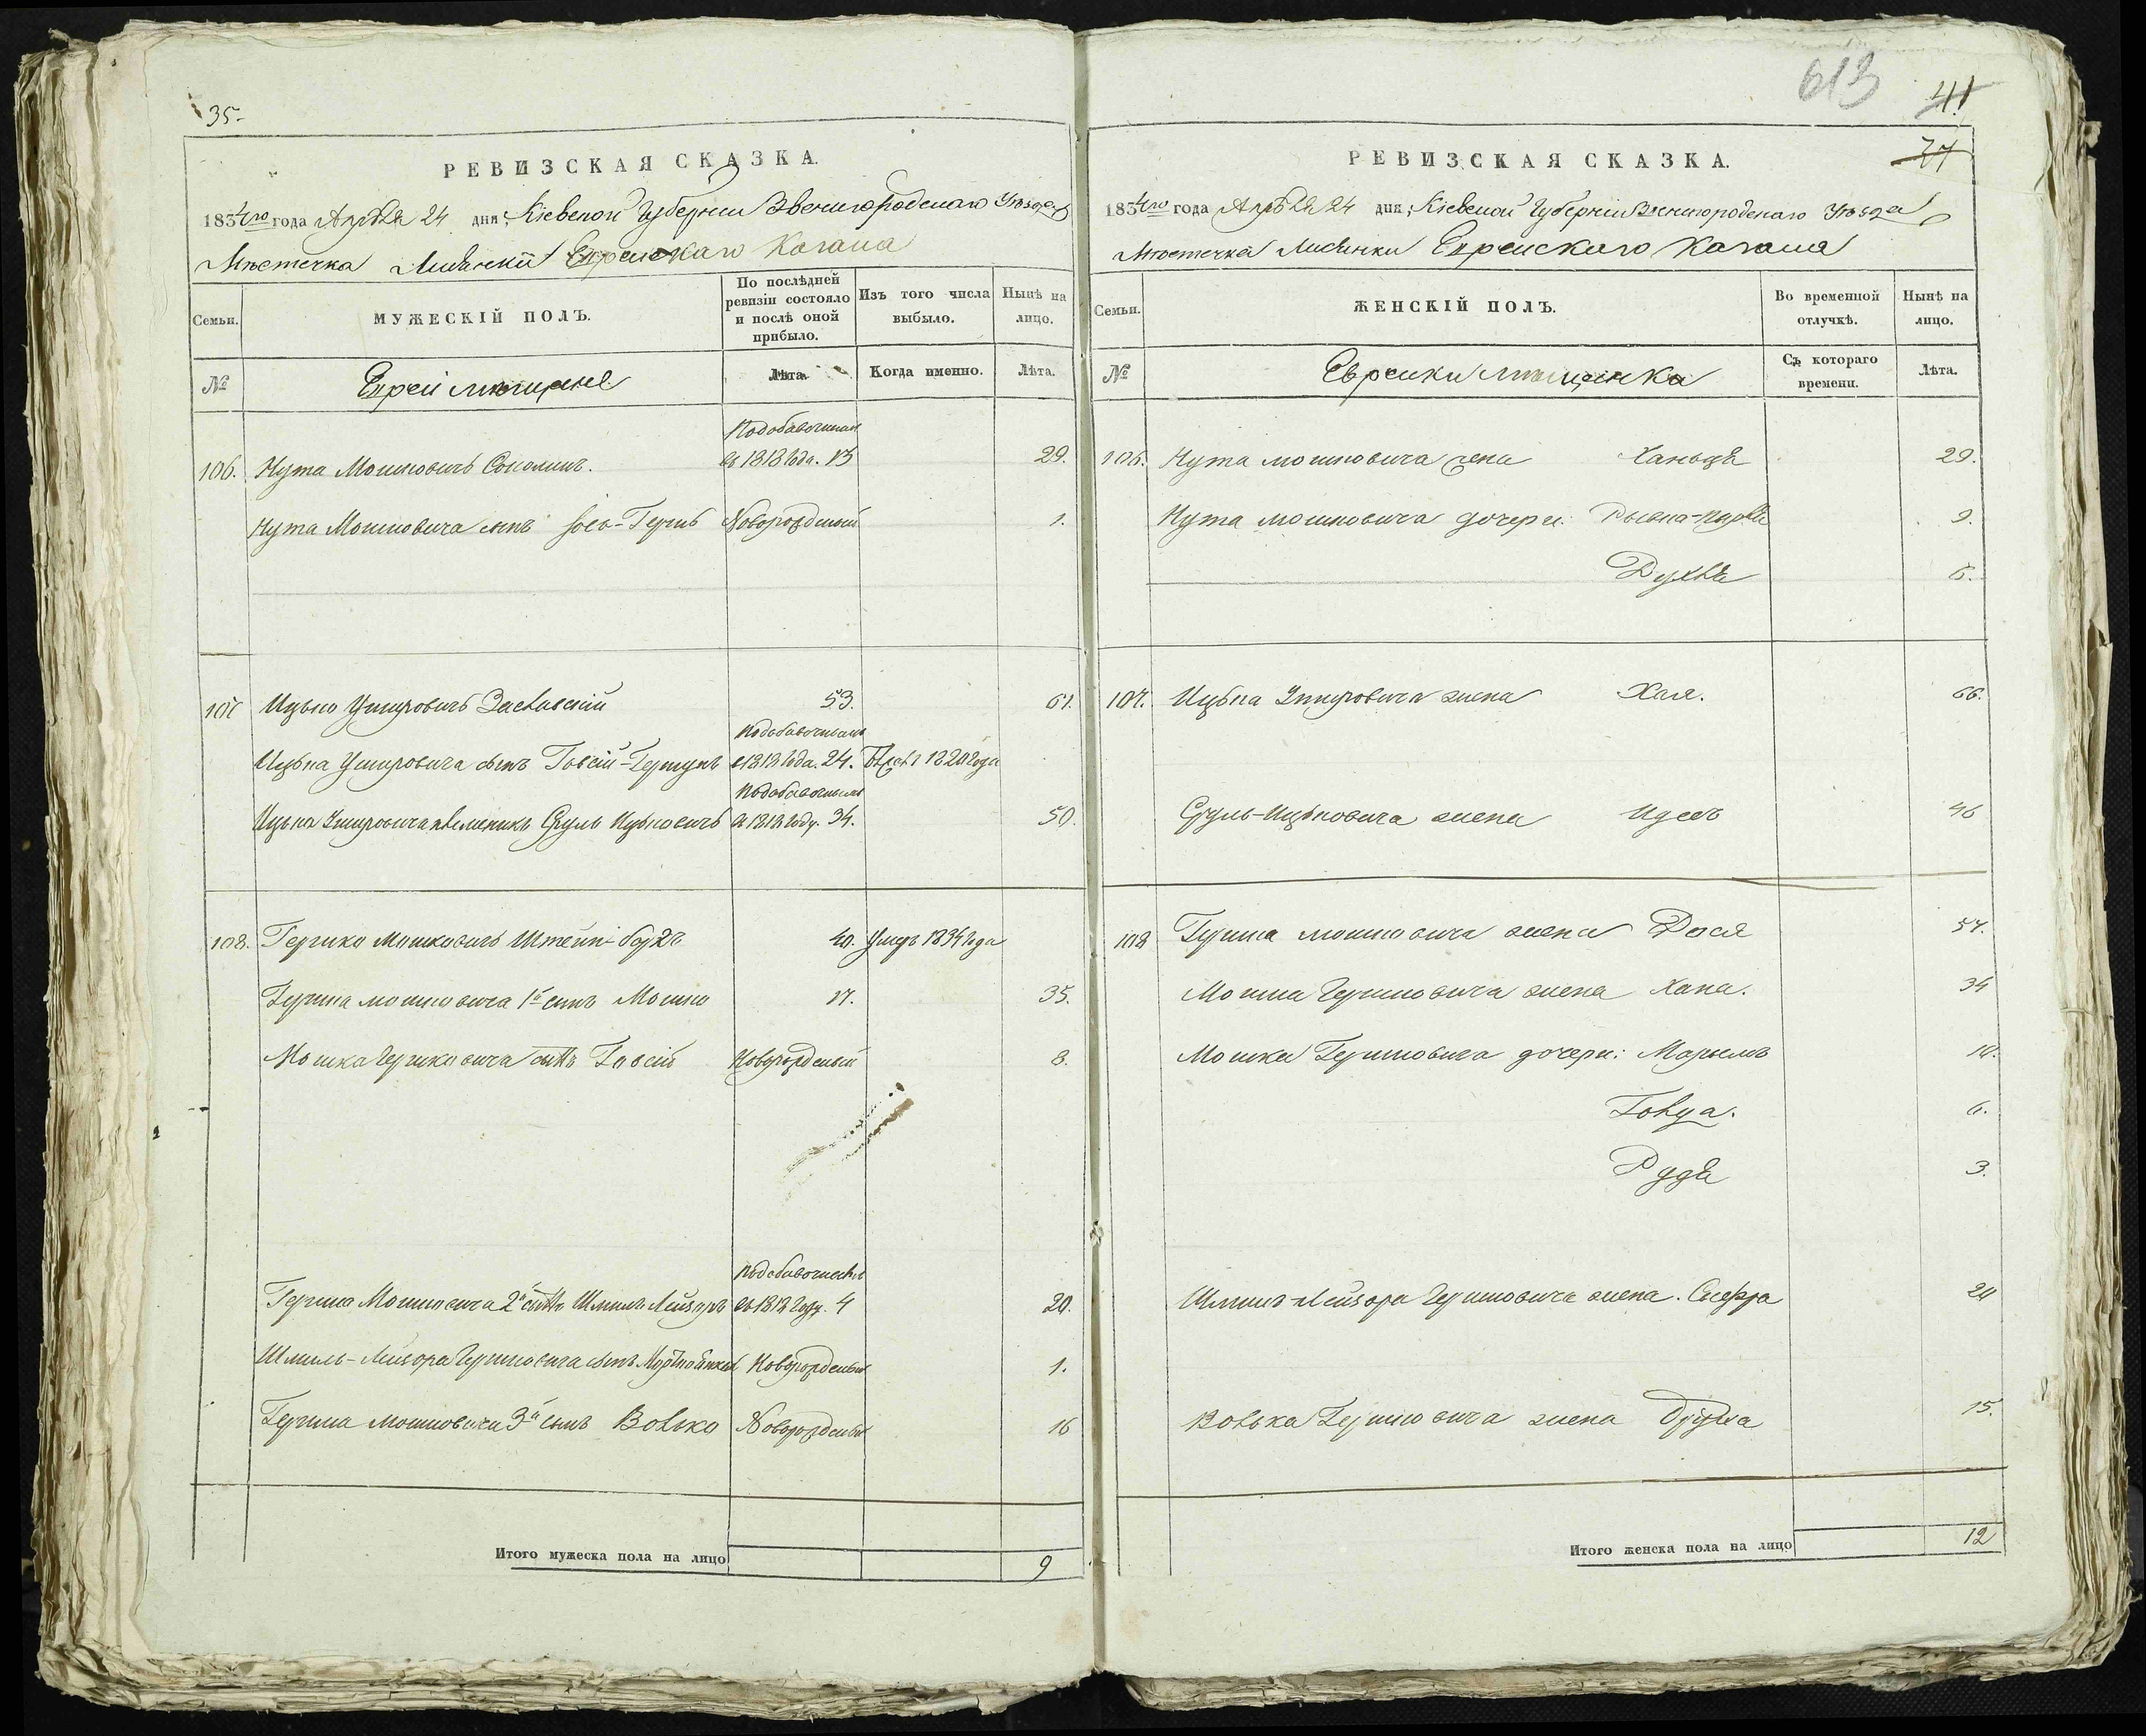 35.
РЕВИЗСКАЯ СКАЗКА.
1834го года Апрѣля 24 дня, Кіевской Губерніи Звенигородскаго Уѣзда
Мѣстечка Лисянки Еврейскаго Кагала
Семьи.
МУЖЕСКІЙ ПОЛЪ.
По послѣдней ревизіи состояло и послѣ оной прибыло.
Изъ того числа выбыло.
Нынѣ на лицо.
№
Евреи мѣщане
Лѣта.
Когда именно.
Лѣта.
По добавочнымъ
106. Нута Мошковичъ Соколинъ. съ 1818 года. 13 29.
Нута Мошковича сынъ Гершъ Новорожденный 1.
107 Ицько Умеровичъ Заславскій 53. 61.
По добавочнымъ
Ицька Умеровича сынъ Говсій-Гершунъ 1818 года. 24. 1820 года
По добавочнымъ
Ицька Умеровича племеникъ Сруль Ицьковичъ 1818 году. 34. 50.
108. Гершко Мошковичъ Штейнбергъ 40. Умеръ 1834 года
Гершка Мошковича 1й сынъ Мошко 17. 35.
Мошка Гершковича сынъ Говсій Новорожденный 8.
По добавочнымъ
Гершка Мошковича 2й сынъ Шмиль Лейзоръ 1818 году. 4 20.
Шмиль-Лейзора Гершковича сынъ Новорожденный 1.
Гершка Мошковича 3й сынъ Волько Новорожденный 16
Итого мужеска пола на лицо 9
613
41
27
РЕВИЗСКАЯ СКАЗКА.
1834го года Апрѣля 24 дня, Кіевской Губерніи Звенигородскаго Уѣзда
Мѣстечка Лисянки Еврейскаго Кагала
Семьи.
ЖЕНСКІЙ ПОЛЪ.
Во временной отлучкѣ.
Нынѣ на лицо.
№
Еврейки мѣщанки
Съ котораго времени.
Лѣта.
106. Нута Мошковича жена Ханьця 29.
Нута Мошковича дочери: Рывка-Перля 9.
Рухля 6.
107. Ицька Умеровича жена Хая. 66.
Сруль-Ицьковича жена Идесъ 46
108 Гершка Мошковича жена Дося 57.
Мошка Гершковича жена Хана. 34
Мошка Гершковича дочери: Марьямъ 10.
Голда. 6.
Рудя 3.
Шмиль-Лейзора Гершковича жена. Сифра 20
Волька Гершковича жена 15.
Итого женска пола на лицо 12